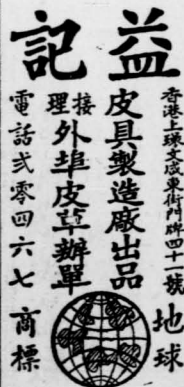 益記
香港上環文咸東街門牌四十一號
皮具製造廠出品
接理外埠皮草辦單
電話弍零四六七
地球
商標